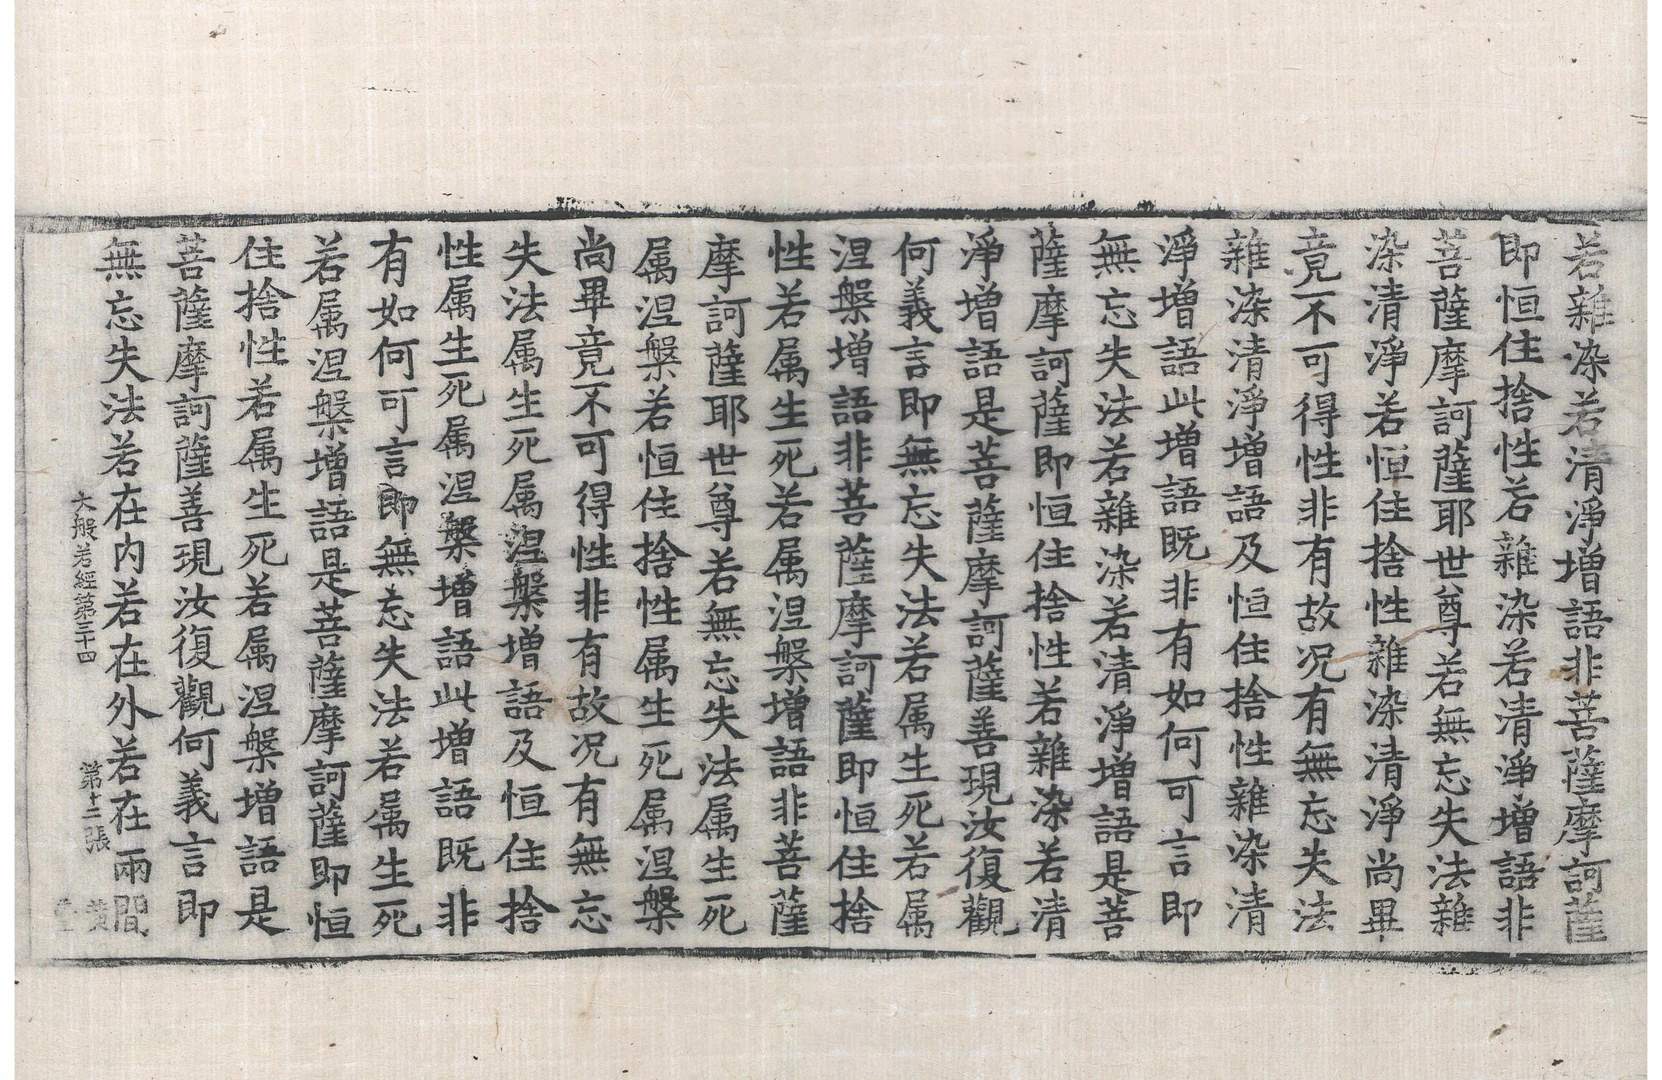 若雜染若清淨增語非菩薩摩訶薩
即恒住捨性若雜染若清淨增語非
菩薩摩訶薩耶世尊若無忘失法雜
染清淨若恒住捨性雜染清淨尚畢
竟不可得性非有故況有無忘失法
雜染清淨增語及恒住捨性雜染清
淨增語此增語既非有如何可言即
無忘失法若雜染若清淨增語是菩
薩摩訶薩即恒住捨性若雜染若清
淨增語是菩薩摩訶薩善現汝復觀
何義言即無忘失法若属生死若属
涅槃增語非菩薩摩訶薩即恒住捨
性若属生死若属涅槃增語非菩薩
摩訶薩耶世尊若無忘失法属生死
属涅槃若恒住捨性属生死属涅槃
尚畢竟不可得性非有故況有無忘
失法属生死属涅槃增語及恒住捨
性属生死属涅槃增語此增語既非
有如何可言即無忘失法若属生死
若属涅槃增語是菩薩摩訶薩即恒
住捨性若属生死若属涅槃增語是
菩薩摩訶薩善現汝復觀何義言即
無忘失法若在內若在外若在兩間
大般若經第三十四 第十二張 黄